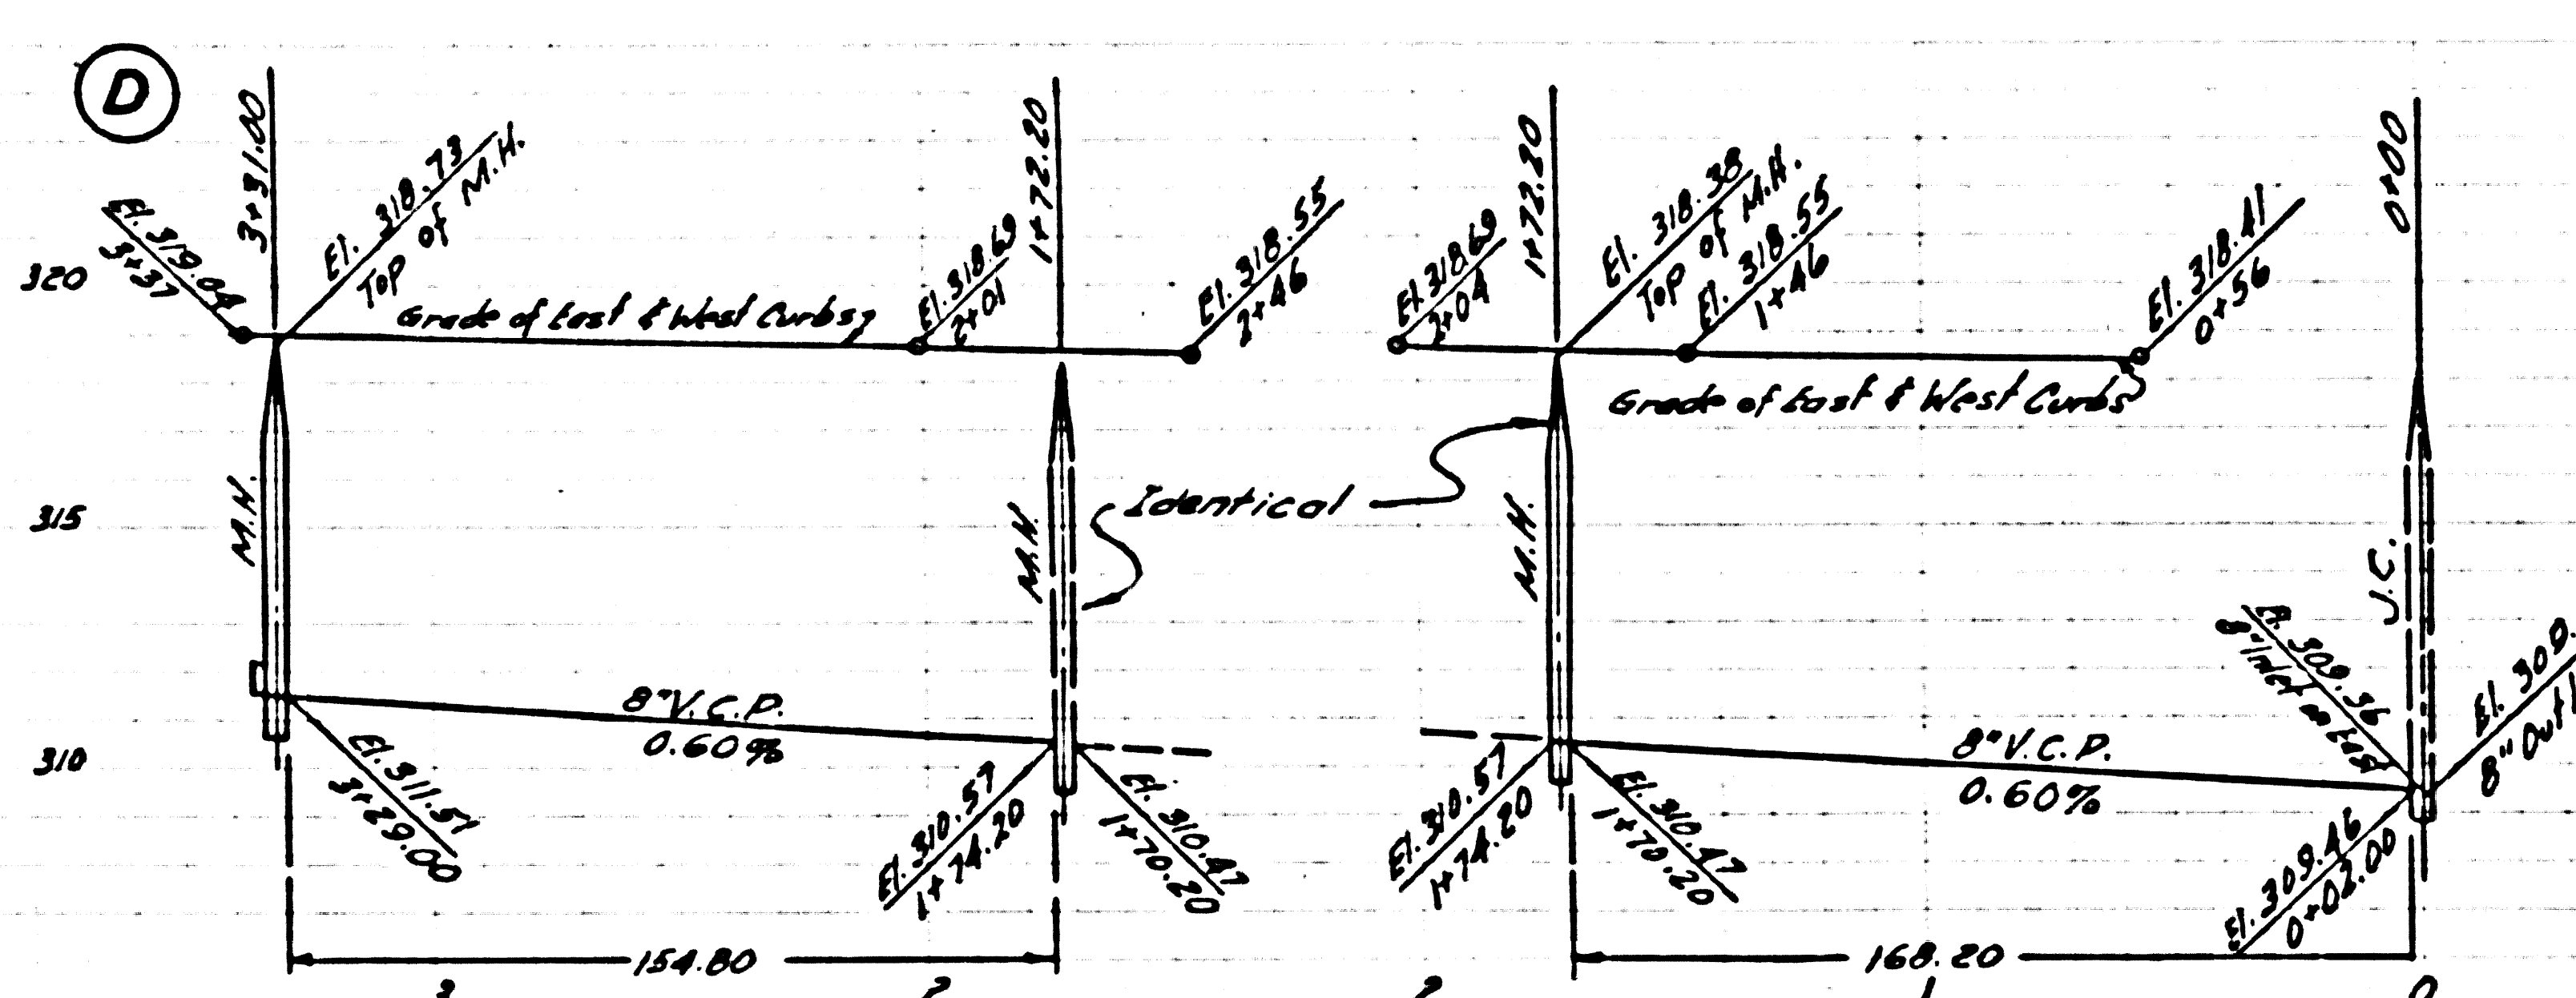 D
3+31.00
El. 318.73
Top of M.H.
El. 319.04
3+37
320
Grade of East & West Curbs
El. 318.69
2+01
1+72.20
El. 318.55
1+46
El. 318.69
2+04
1+72.20
El. 318.38
Top of M.H.
El. 318.55
1+46
El. 318.41
0+56
0+00
Grade of East & West Curbs
315
M.H.
M.H.
Identical
M.H.
J.C.
310
8" V.C.P.
0.60%
El. 311.51
3+29.00
El. 310.57
1+74.20
El. 310.47
1+70.20
El. 310.57
1+74.20
El. 310.47
1+70.20
8" V.C.P.
0.60%
El. 309.36
8" Inlet
El. 309.
8" Outl
El. 309.46
0+02.00
154.80
168.20
3
2
2
1
0